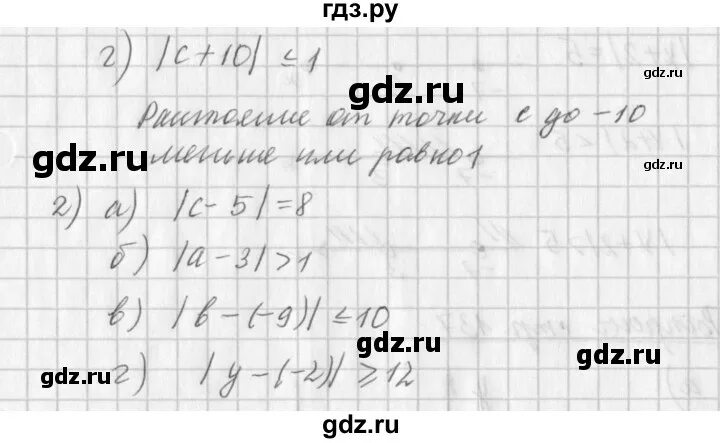 гдз.ру
г) |c+10| ≤ 1
Расстояние от точки c до -10
меньше или равно 1
2) а) |c-5|=8
б) |a-3|>1
в) |b-(-9)| ≤ 10
г) |y-(-2)| ≥ 12
gdz.ru
gdz.ru
gdz.ru
gdz.ru
gdz.ru
gdz.ru
gdz.ru
gdz.ru
gdz.ru
gdz.ru
gdz.ru
gdz.ru